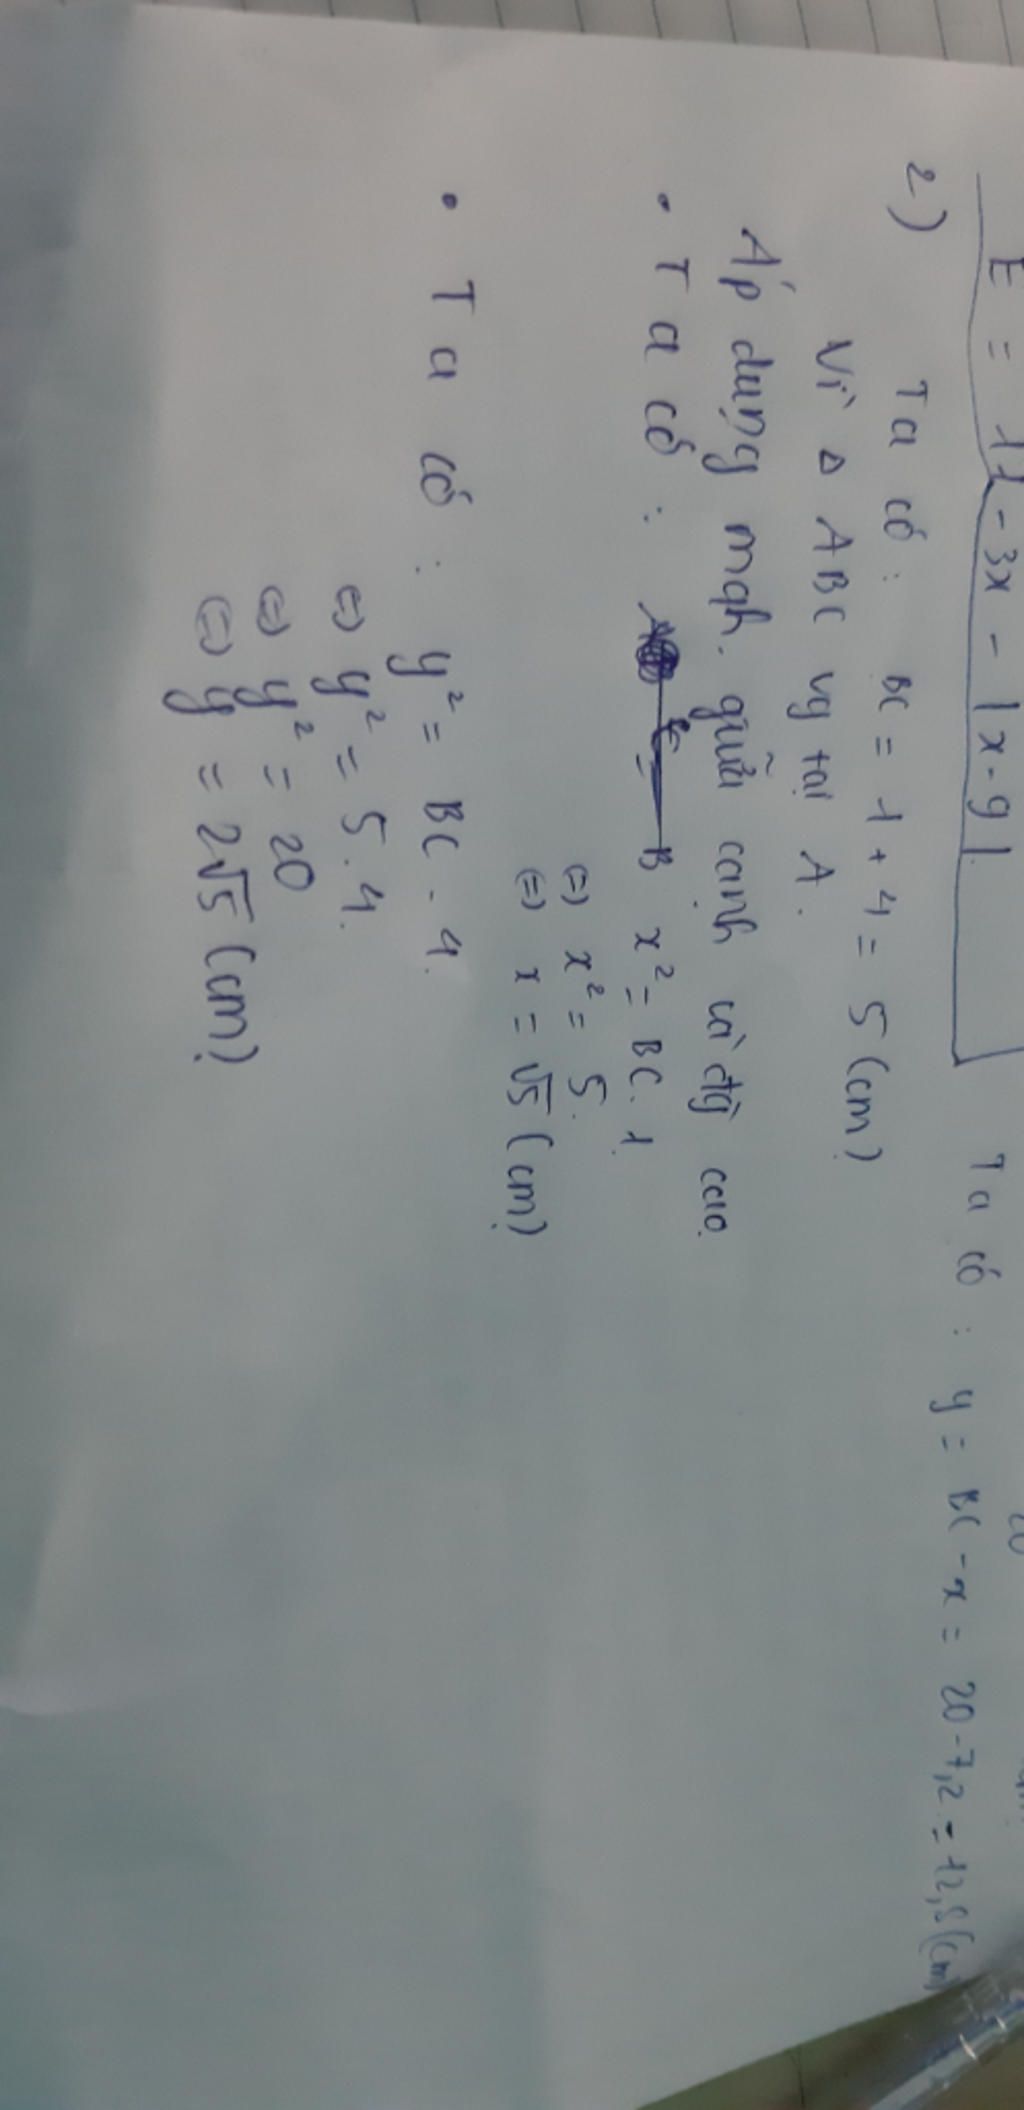 E = 11 - 3x - |x - 9|
Ta có : y = BC - x = 20 - 7,2 = 12,8 (cm)
2) Ta có : BC = 1 + 4 = 5 (cm)
Vì Δ ABC vg tại A.
Áp dụng mqh. giữa cạnh và đg cao
• Ta có : x² = BC . 1
(=) x² = 5.
(=) x = √5 (cm)
• Ta có : y² = BC . 4.
(=) y² = 5 . 4.
(=) y² = 20
(=) y = 2√5 (cm)